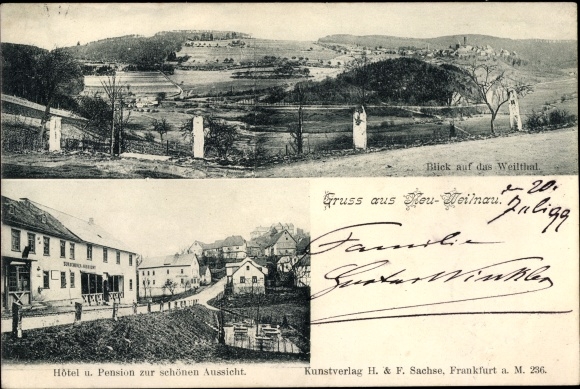 Blick auf das Weiltthal.
Gruss aus Neu-Weilnau.
20.
Juli 99
Familie
Gustav Winkler
Hôtel u. Pension zur schönen Aussicht.
Kunstverlag H. & F. Sachse, Frankfurt a. M. 236.